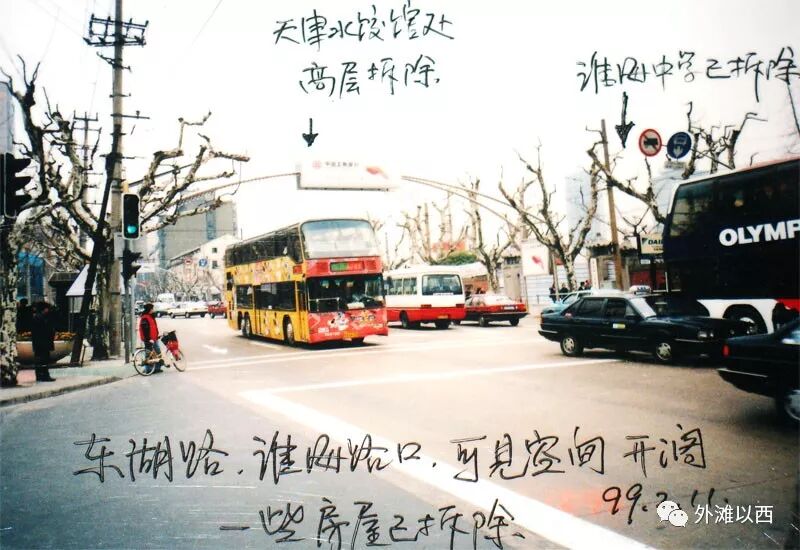 天津水饺馆处
高层拆除
淮海中学已拆除
中国工商银行
OLYMP
东湖路.淮海路口,可见空间开阔
99.2.11.
一些房屋已拆除
外滩以西